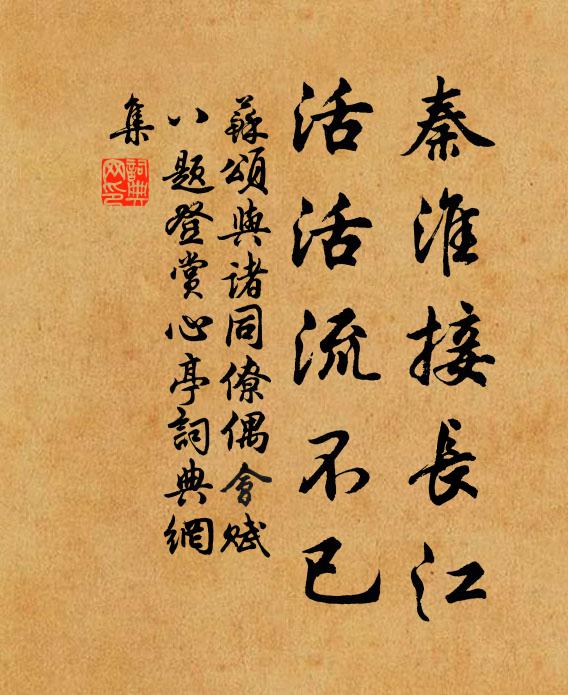 秦淮接長江
活活流不已
蘇頌與諸同僚偶會賦
八題登賞心亭詞典網
集
詞典
网印